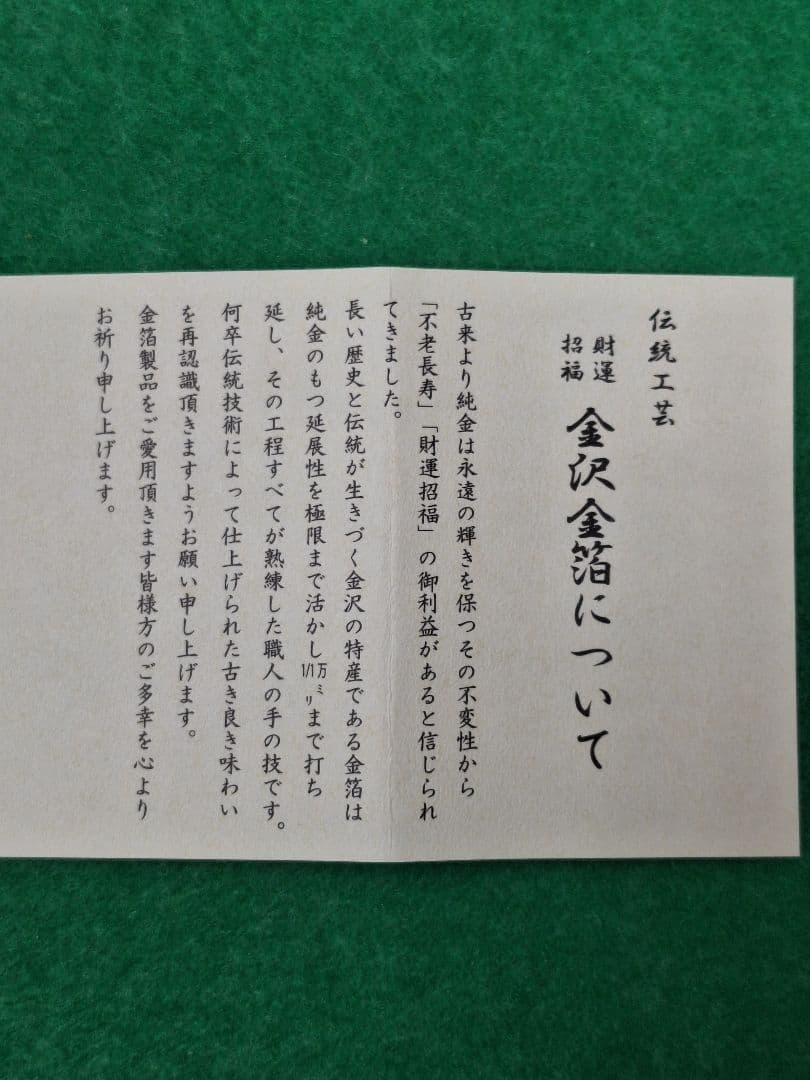 伝統工芸
財運
招福
金沢金箔について
古来より純金は永遠の輝きを保つその不変性から
「不老長寿」「財運招福」の御利益があると信じられ
てきました。
長い歴史と伝統が生きづく金沢の特産である金箔は
純金のもつ延展性を極限まで活かし1/1万ミリまで打ち
延し、その工程すべてが熟練した職人の手の技です。
何卒伝統技術によって仕上げられた古き良き味わい
を再認識頂きますようお願い申し上げます。
金箔製品をご愛用頂きます皆様方のご多幸を心より
お祈り申し上げます。